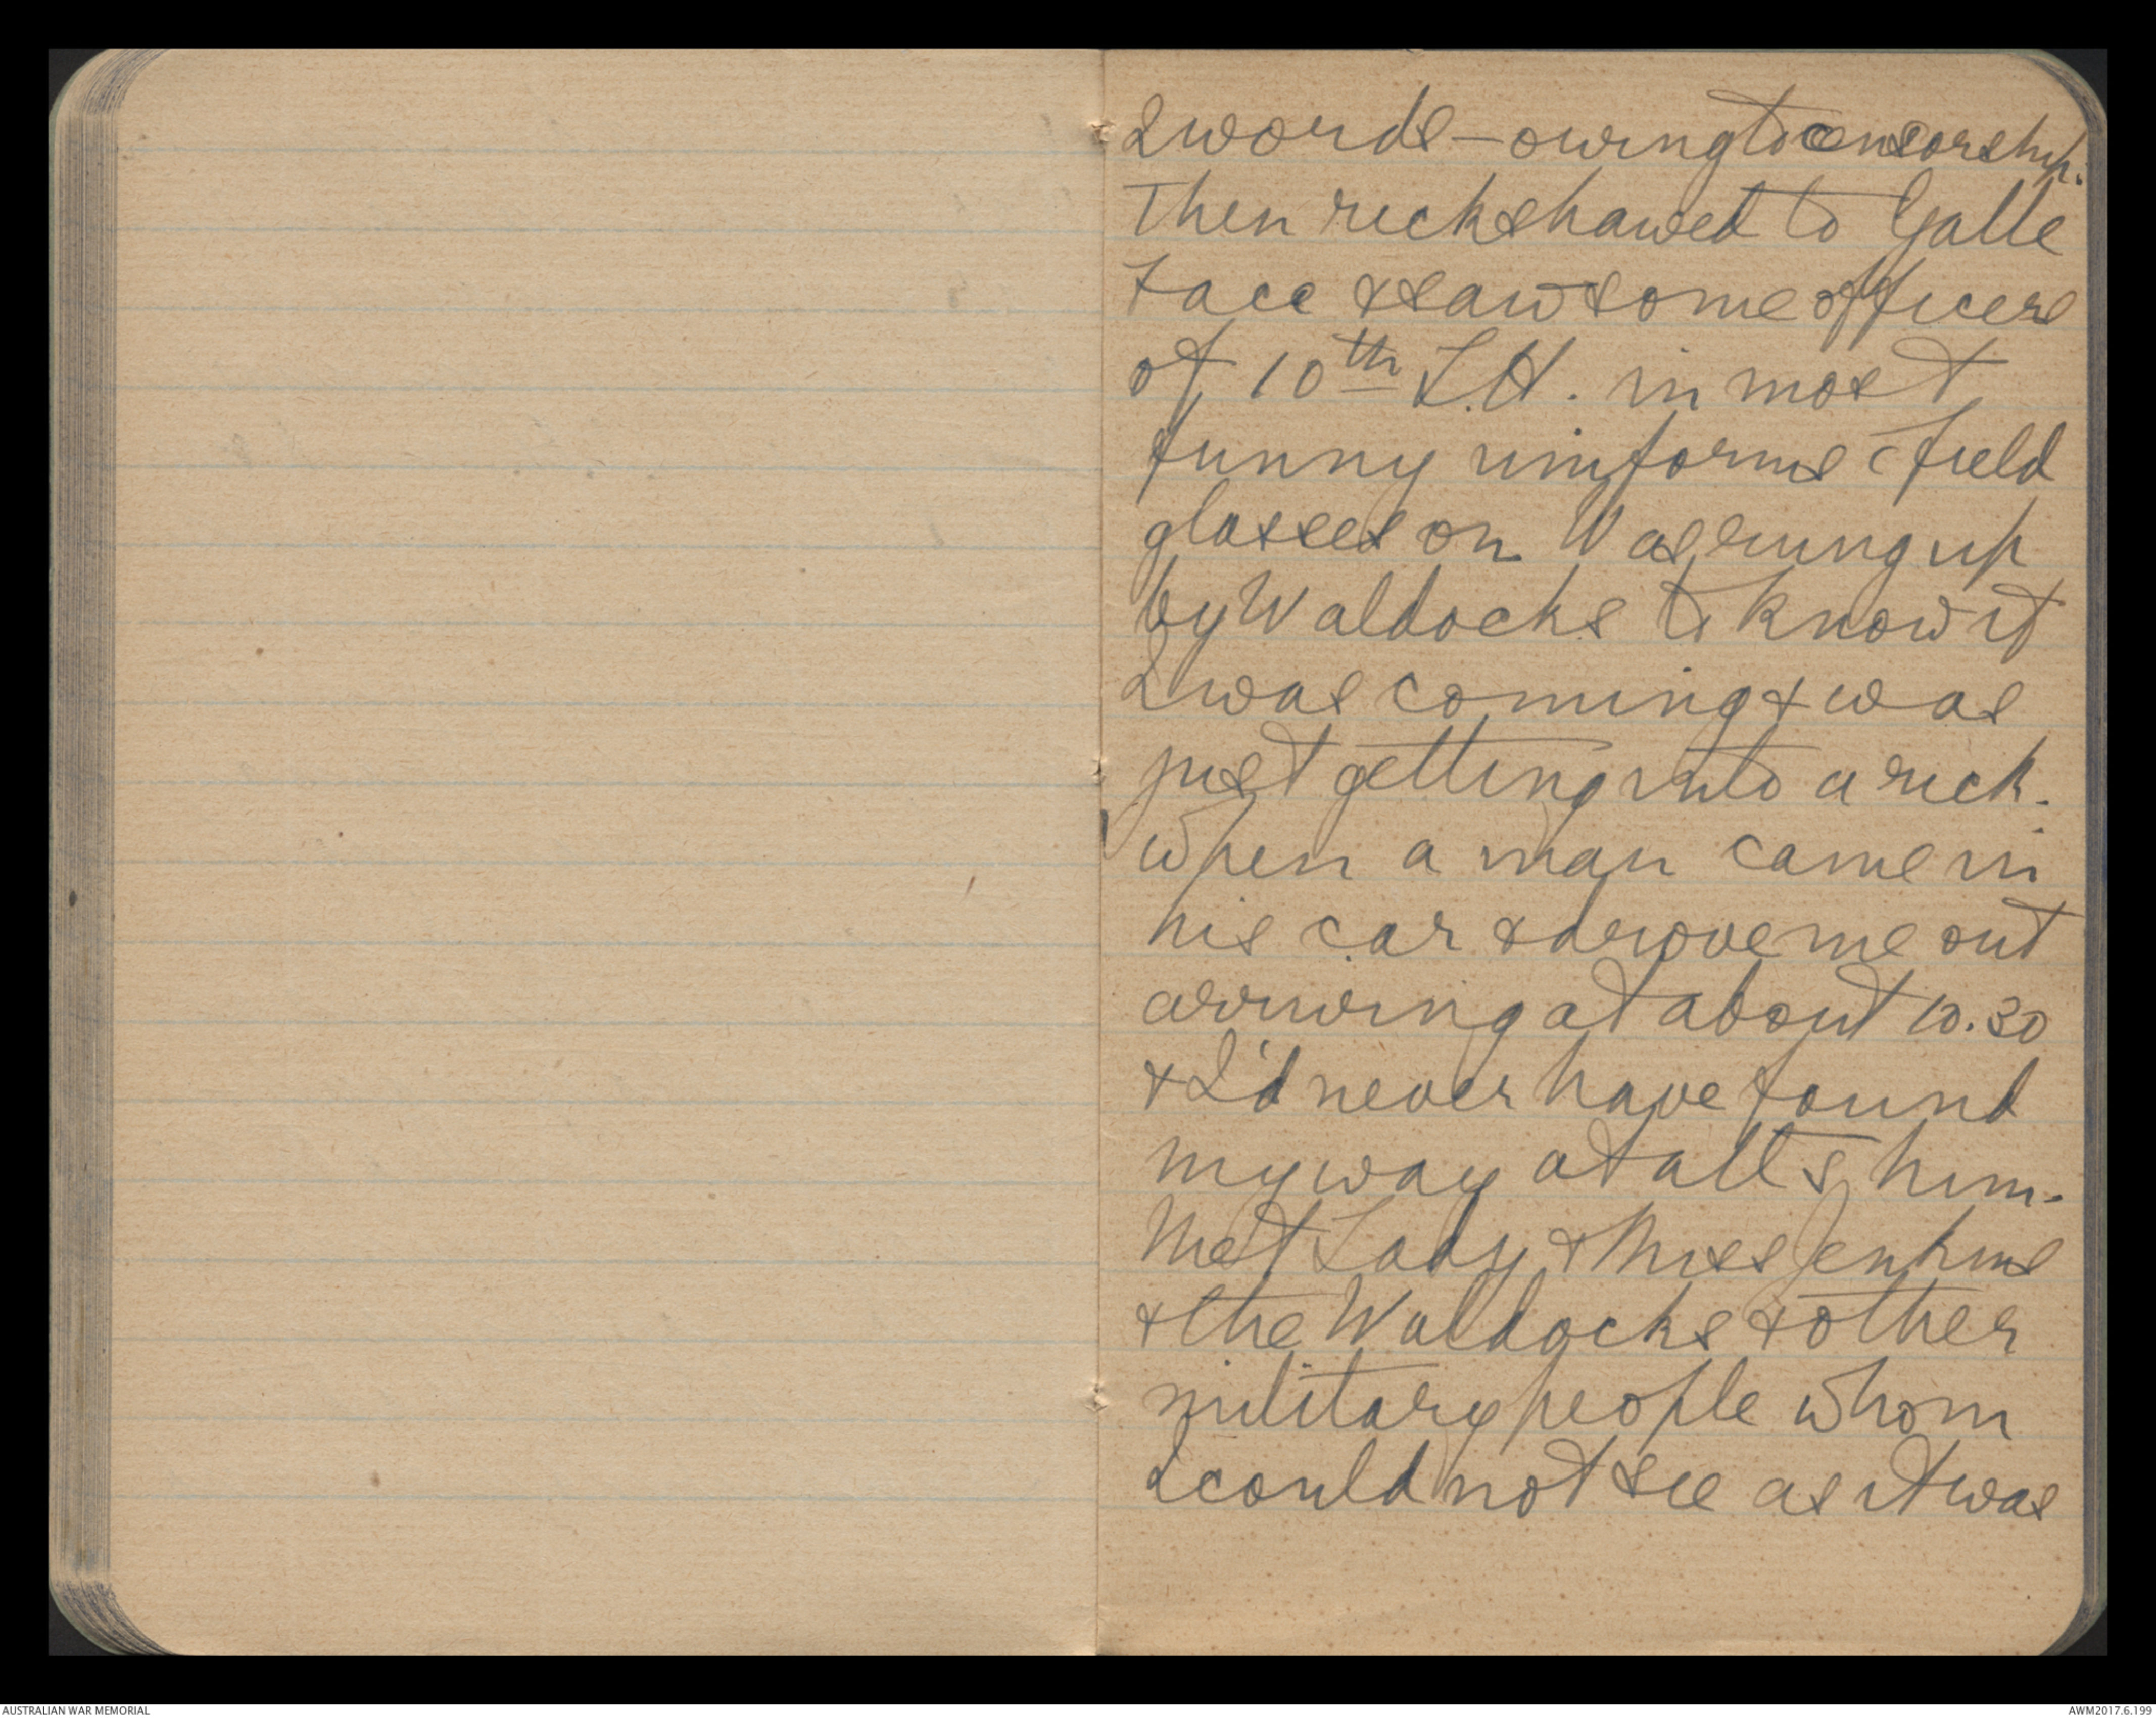 2 words – owing to censorship.
Then rickshawed to Galle
Face & saw some officers
of 10th L.H. in most
funny uniforms c̄ field
glasses on Was rung up
by Waldocks to know if
I was coming & was
just getting into a rick.
when a man came in
his car & drove me out
arriving at about 10.30
& I'd never have found
my way at all s̄ him.
Met Lady & Miss Jenkins
& the Waldocks & other
military people whom
I could not see as it was
AUSTRALIAN WAR MEMORIAL
AWM2017.6.199